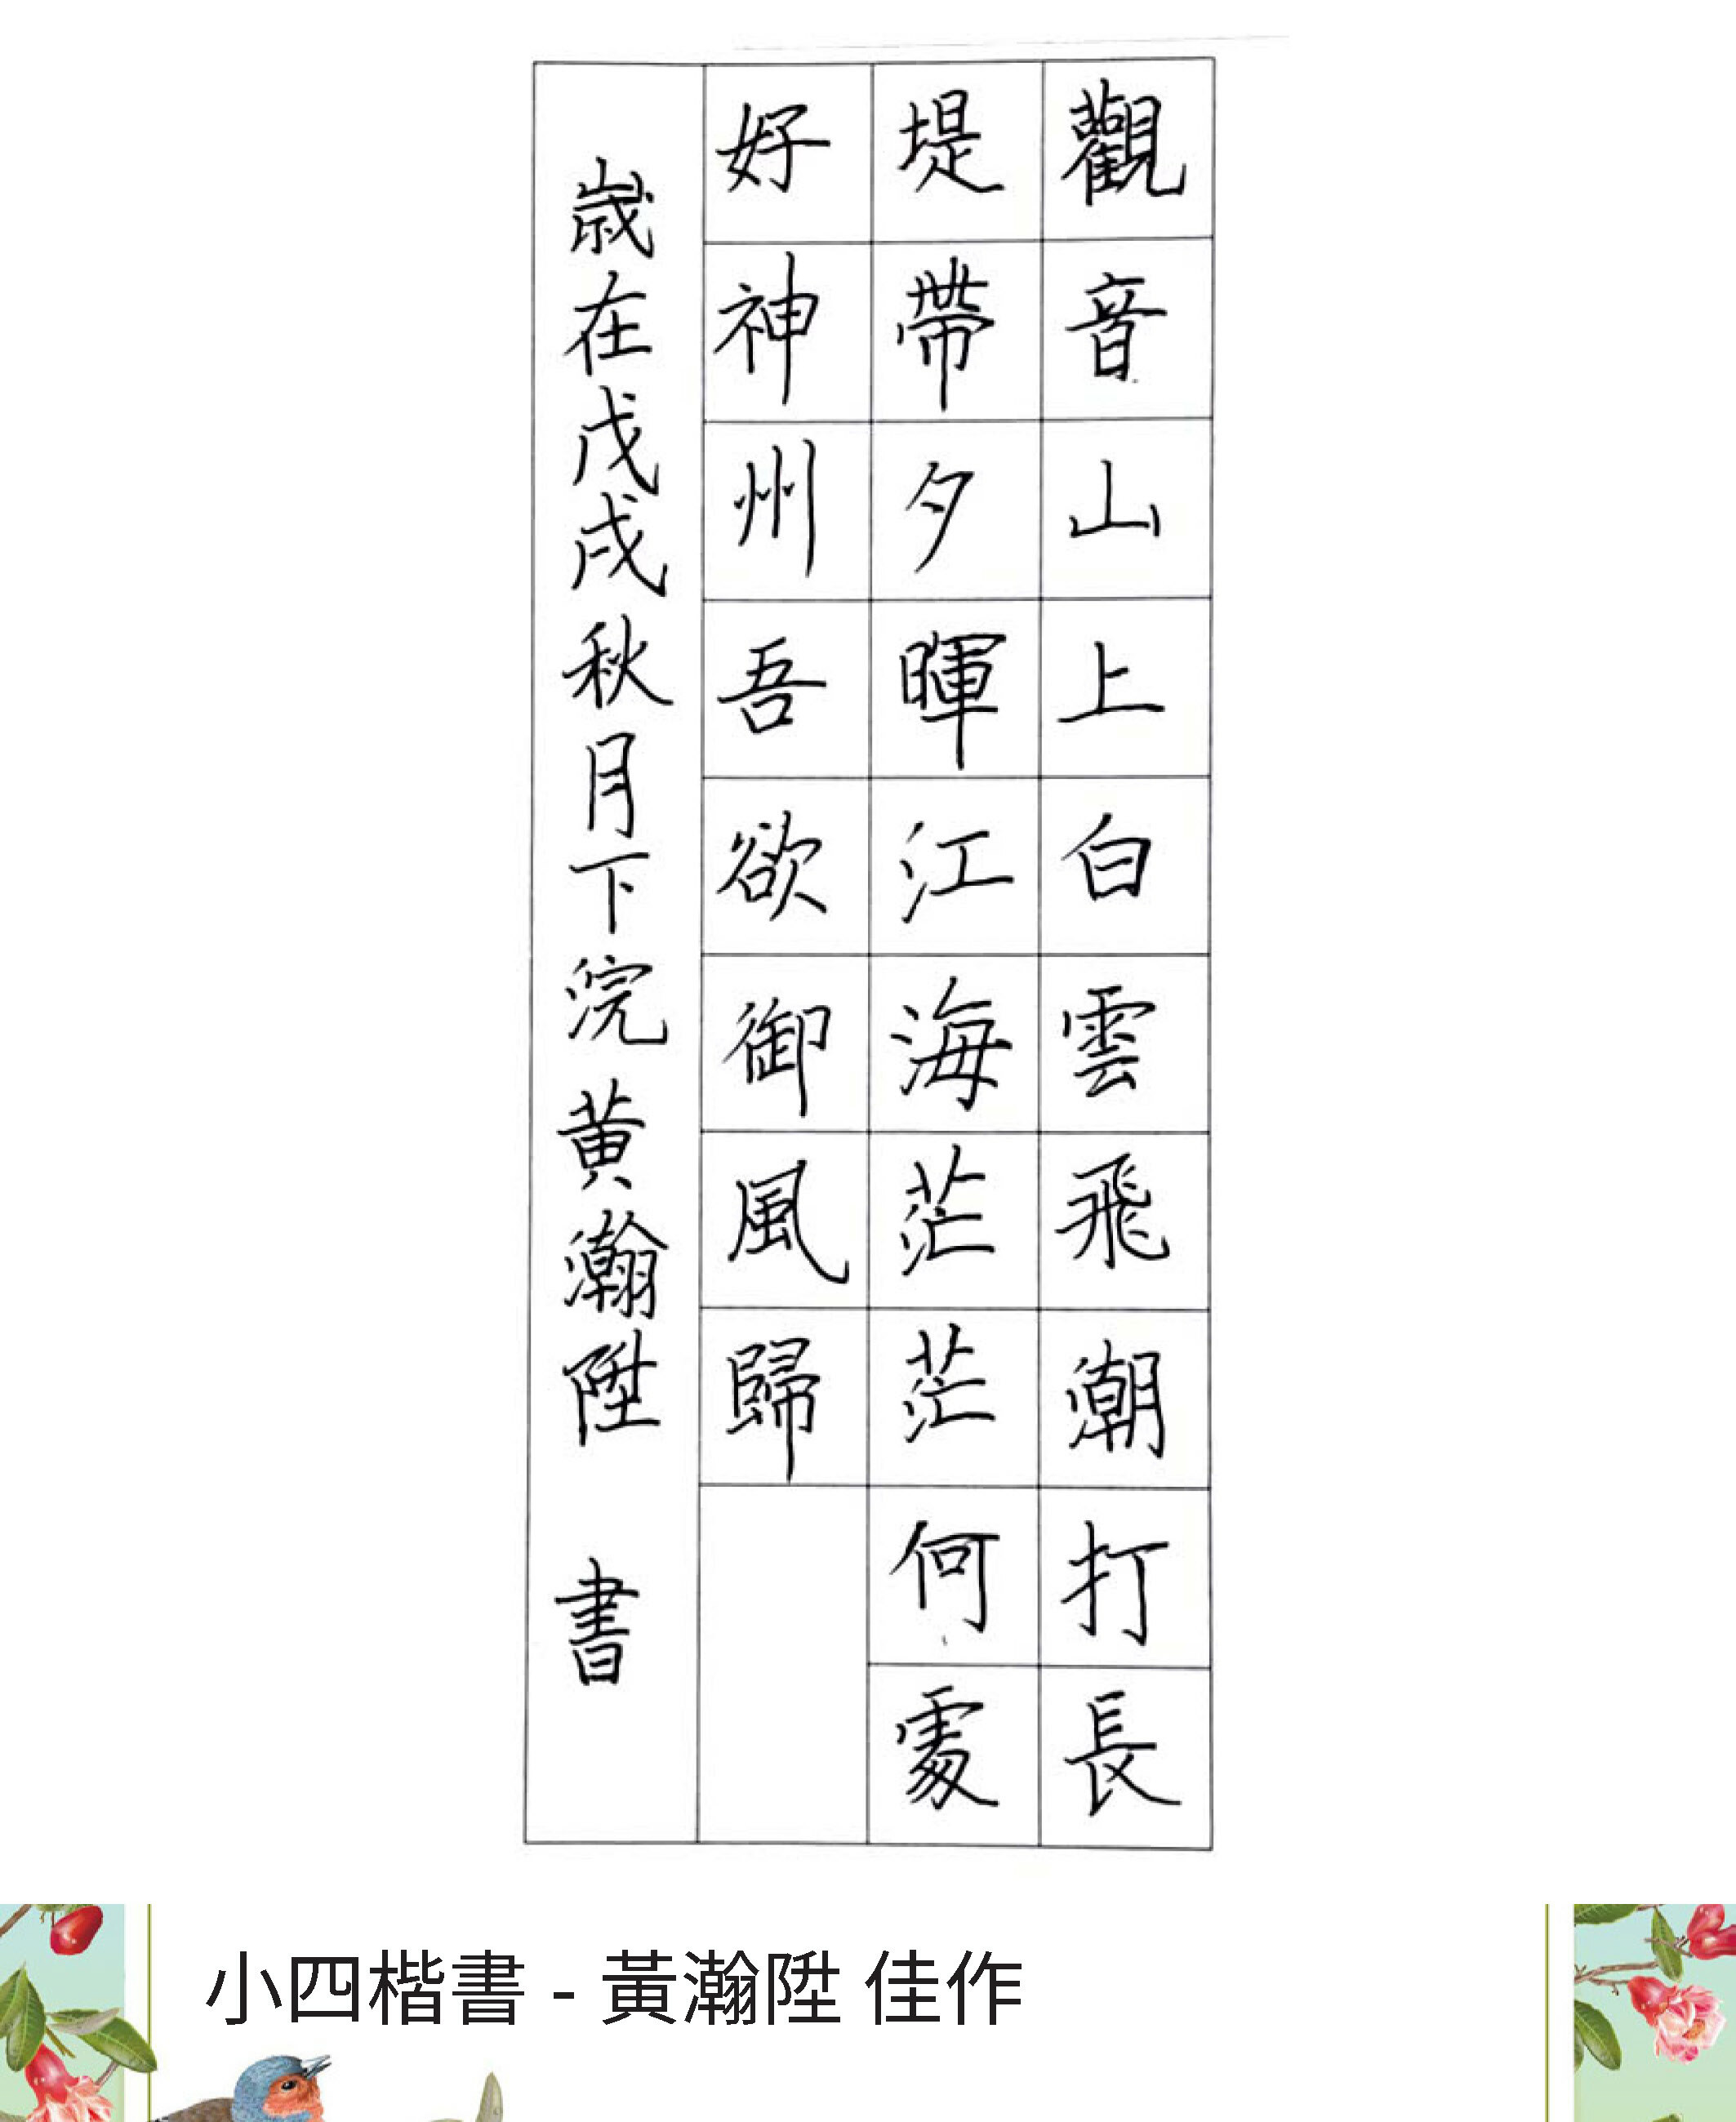 觀音山上白雲飛潮打長
堤帶夕暉江海茫茫何處
好神州吾欲御風歸
歲在戊戌秋月下浣黃瀚陞 書
小四楷書 - 黃瀚陞 佳作